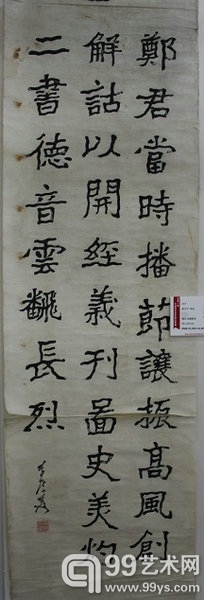 鄭君當時播節讓振高風創
解詁以開經義刊啚史美灼
二書德音雲飜長烈
99艺术网
www.99ys.com